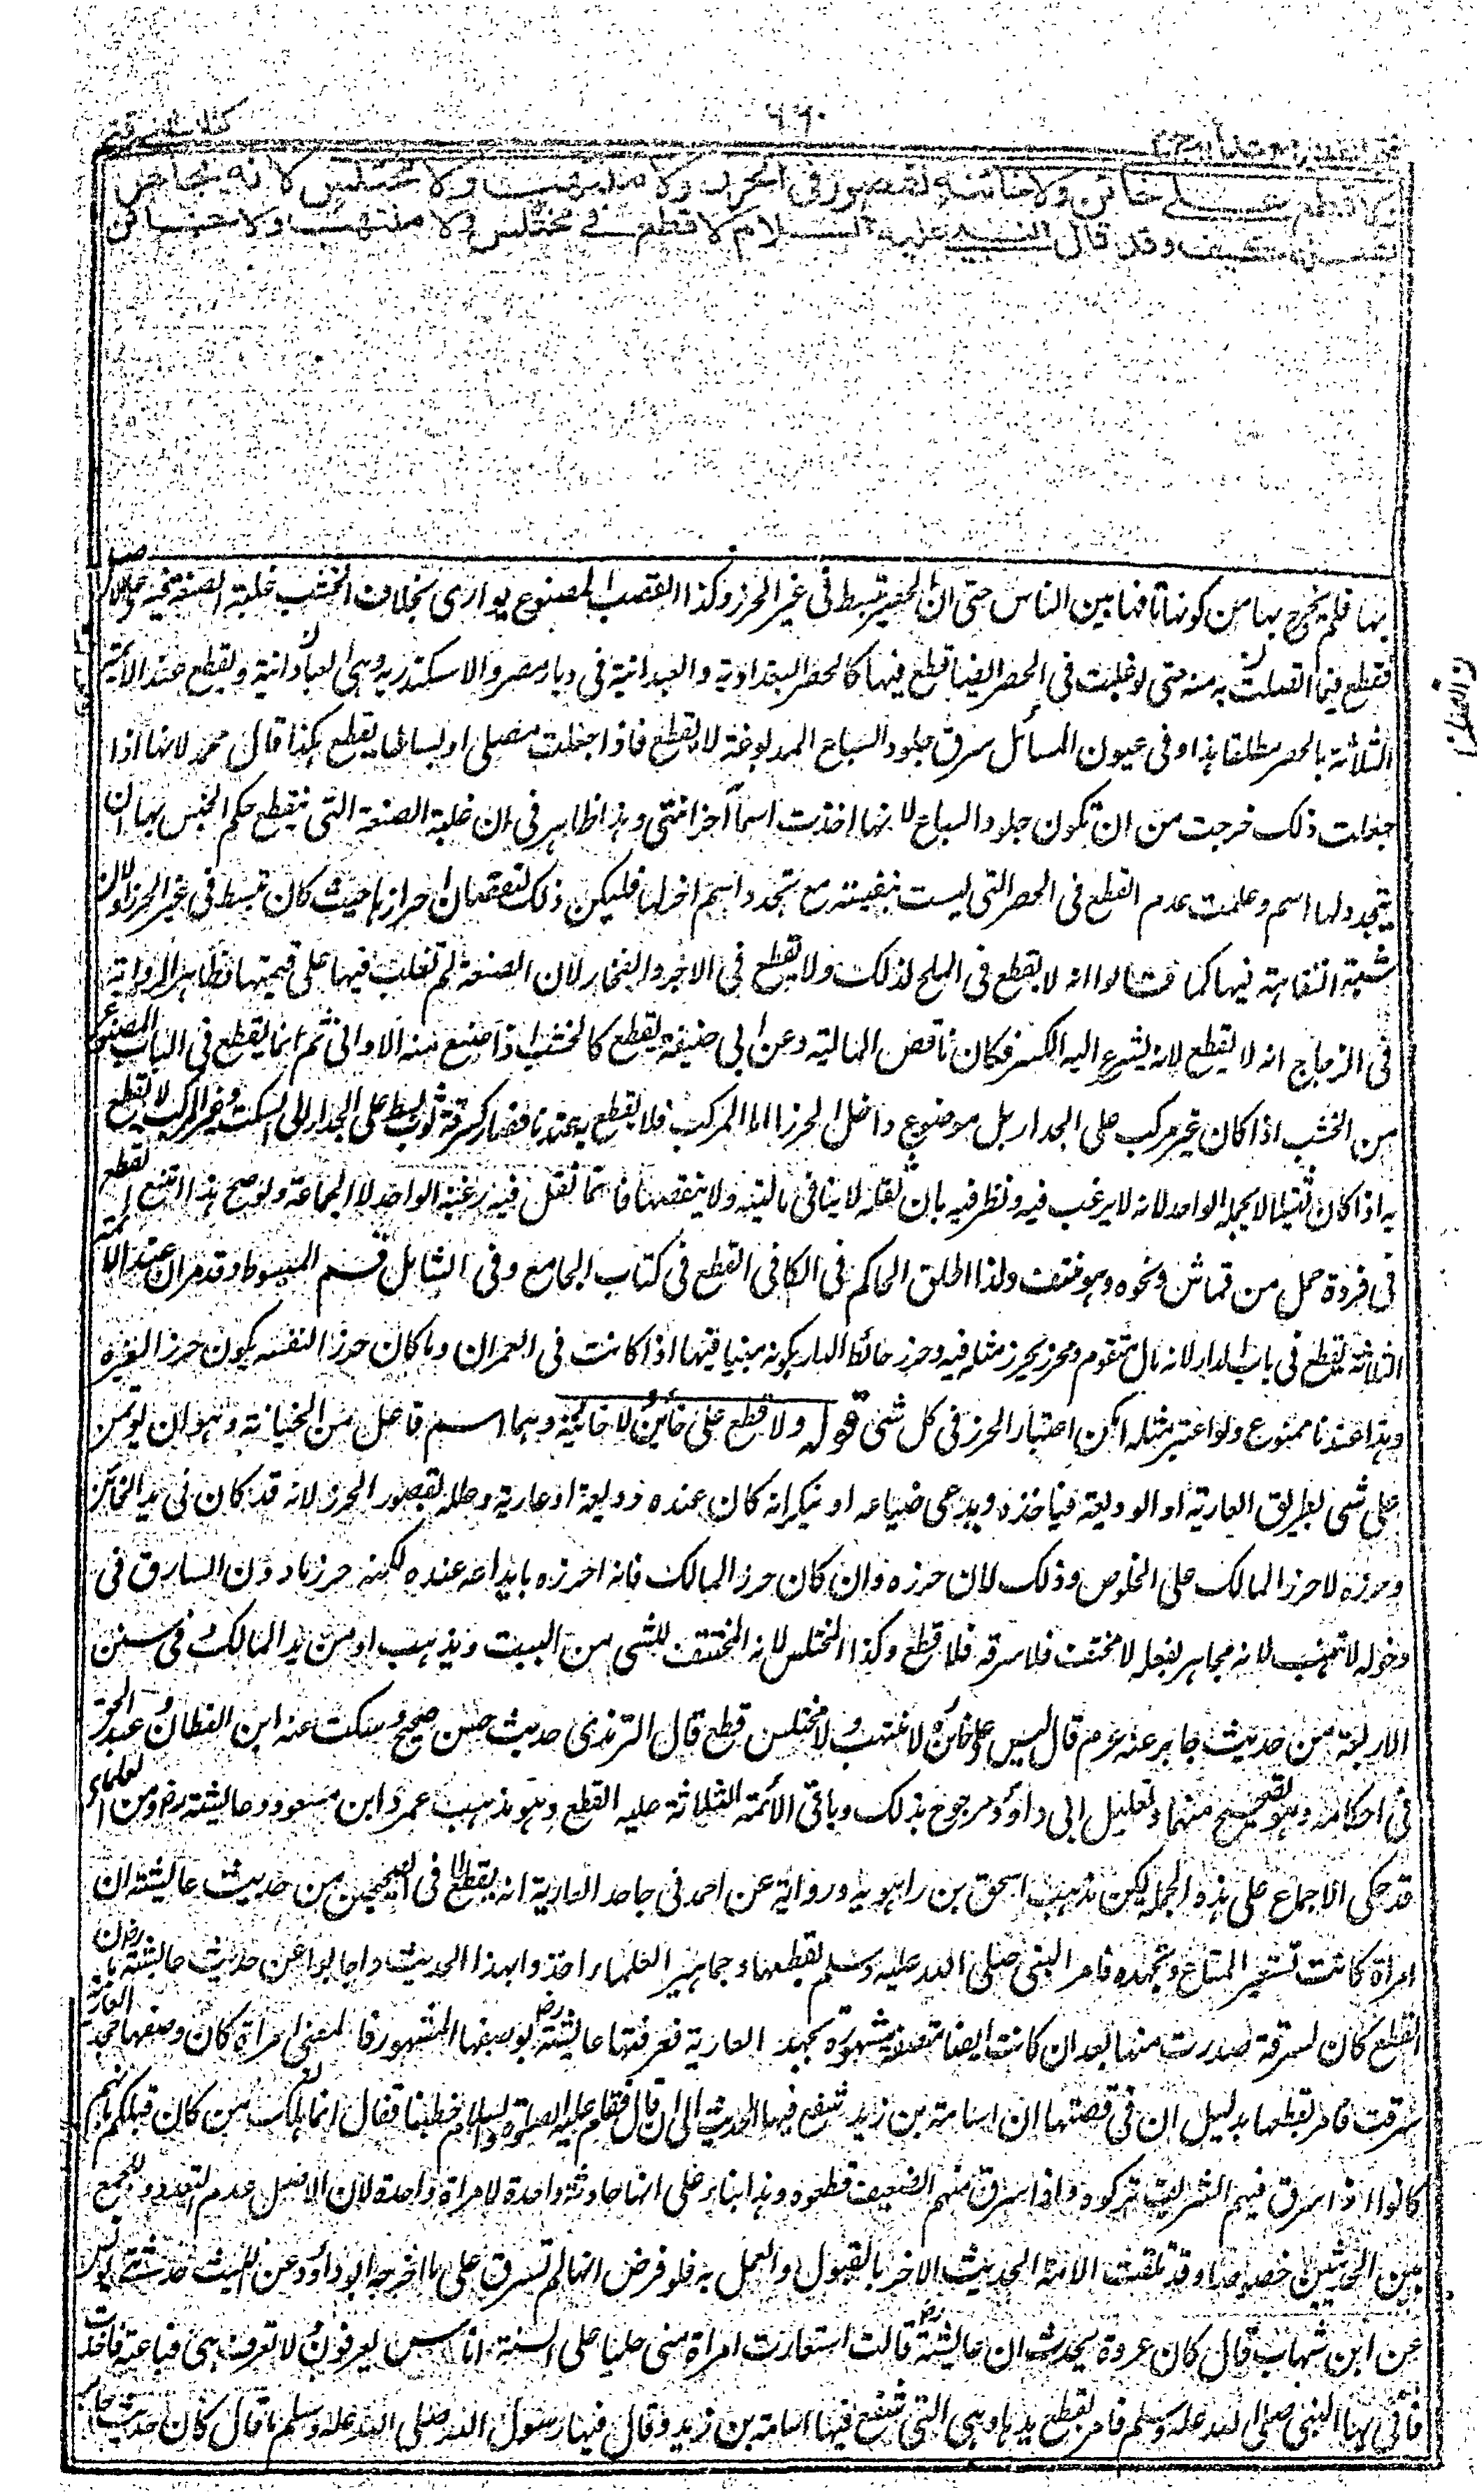 ٦٦٠
كتاب السرقة
ولا قطع على خائن ولا خائنة لقصور في الحرز ولا منتهب ولا مختلس لانه يجاهر
بفعله كيف وقد قال النبي عليه السلام لا قطع في مختلس ولا منتهب ولا خائن
بها فلم يخرج بها من كونها تافها بين الناس حتى ان الحصير تبسط في غير الحرز وكذا القصب المصنوع بوارى بخلاف الخشب غلبة الصنعة فيه
فقطع فيما اتصلت به منه حتى لو غلبت في الحصر ايضا قطع فيها كالحصر البغدادية والعبدانية في ديار مصر والاسكندرية وهي العبادانية ويقطع عند الائمة
الثلاثة بالحصر مطلقا هذا وفي عيون المسائل سرق جلود السباع المدبوغة لا يقطع فاذا جعلت مصلى او بساطا يقطع هكذا قال محمد لانها اذا
جعلت ذلك خرجت من ان تكون جلود السباع لانها اخذت اسما آخر انتهى وهذا ظاهر في ان غلبة الصنعة التي ينقطع حكم الجنس بها ان
يتجدد لها اسم وعلمت عدم القطع في الحصر التي ليست بنفيسة مع تجدد اسم اخر لها فليكن ذلك لنقصان احرازها حيث كان تبسط في غير الحرز او لان
شبهة التفاهة فيها كما قالوا انه لا يقطع في الملح لذلك ولا يقطع في الاجر والفخار لان الصنعة لم تغلب فيها على قيمتها وظاهر الرواية
في الزجاج انه لا يقطع لانه يسرع اليه الكسر فكان ناقص المالية وعن ابي حنيفة يقطع كالخشب اذا صنع منه الاواني ثم انما يقطع في الباب المصنوع
من الخشب اذا كان غير مركب على الجدار بل موضوع داخل الحرز اما المركب فلا يقطع به عندنا فصار كسرقة ثوب بسط على الجدار الى السكة وغير المركب لا يقطع
به اذا كان ثقيلا لا يحمله الواحد لانه لا يرغب فيه ونظر فيه بان ثقله لا ينافي ماليته ولا ينقصها فانما تقل فيه رغبة الواحد لا الجماعة ولو صح هذا امتنع القطع
في فردة حمل من قماش ونحوه وهو منتف ولذا اطلق الحاكم في الكافي القطع في كتاب الجامع وفي الشامل قسم المبسوط وقد مر ان عند الائمة
الثلاثة يقطع في باب الدار لانه مال متقوم ومحرز بحرز مثله فيه وحرز حائط الدار بكونه مبنيا فيها اذا كانت في العمران وما كان حرزا لنفسه يكون حرزا لغيره
وهذا عندنا ممنوع ولو اعتبر مثله امكن اعتبار الحرز في كل شئ قوله ولا قطع على خائن ولا خائنة وهما اسم فاعل من الخيانة وهو ان يؤتمن
على شئ بطريق العارية او الوديعة فياخذه ويدعي ضياعه او ينكر انه كان عنده وديعة او عارية وعلله بقصور الحرز لانه قد كان في يد الخائن
وحرزه لا حرز المالك على الخلوص وذلك لان حرزه وان كان حرز المالك فانه احرزه بايداعه عنده لكنه حرز ماذون السارق في
دخوله لا منتهب لانه مجاهر بفعله لا مختف فلا سرقة فلا قطع وكذا المختلس لانه المختطف للشئ من البيت ويذهب او من يد المالك في سنن
الاربعة من حديث جابر عنه عم قال ليس على خائن ولا منتهب ولا مختلس قطع قال الترمذى حديث حسن صحيح وسكت عنه ابن القطان وعبد الحق
في احكامه وهو تصحيح منهما وتعليل ابي داؤد مرجوح بذلك وباقي الائمة الثلاثة عليه القطع وهو مذهب عمر وابن مسعود وعائشة رض ومن العلماء
قد حكى الاجماع على هذه الجملة لكن مذهب اسحق بن راهويه ورواية عن احمد في جاحد العارية انه يقطع لما في الصحيحين من حديث عائشة ان
امراة كانت تستعير المتاع وتجحده فامر النبي صلى الله عليه وسلم بقطعها وجماهير العلماء اخذوا بهذا الحديث واجابوا عن حديث عائشة رض بان
القطع كان لسرقة صدرت منها بعد ان كانت ايضا متصفة مشهورة بجحد العارية فعرفتها عائشة رض بوصفها المشهور فالمعنى امراة كان وصفها جحد العارية
سرقت فامر بقطعها بدليل ان في قصتها ان اسامة بن زيد شفع فيها الحديث الى ان قال فقام عليه الصلوة والسلام خطيبا فقال انما هلك من كان قبلكم بانهم
كانوا اذا سرق فيهم الشريف تركوه واذا سرق منهم الضعيف قطعوه وهذا بناء على انها حادثة واحدة لامراة واحدة لان الاصل عدم التعدد وللجمع
بين الحديثين خصوصا وقد تلقت الامة الحديث الاخر بالقبول والعمل به فلو فرض انها لم تسرق على ما اخرجه ابو داؤد عن الليث حدثني يونس
عن ابن شهاب قال كان عروة يحدث ان عائشة رض قالت استعارت امراة مني حليا على السنة اناس يعرفون لا تعرف هي فباعته فاخذت
فأتي بها النبي صلى الله عليه وسلم فامر بقطع يدها وهي التي شفع فيها اسامة بن زيد وقال فيها رسول الله صلى الله عليه وسلم ما قال كان حديث جابر